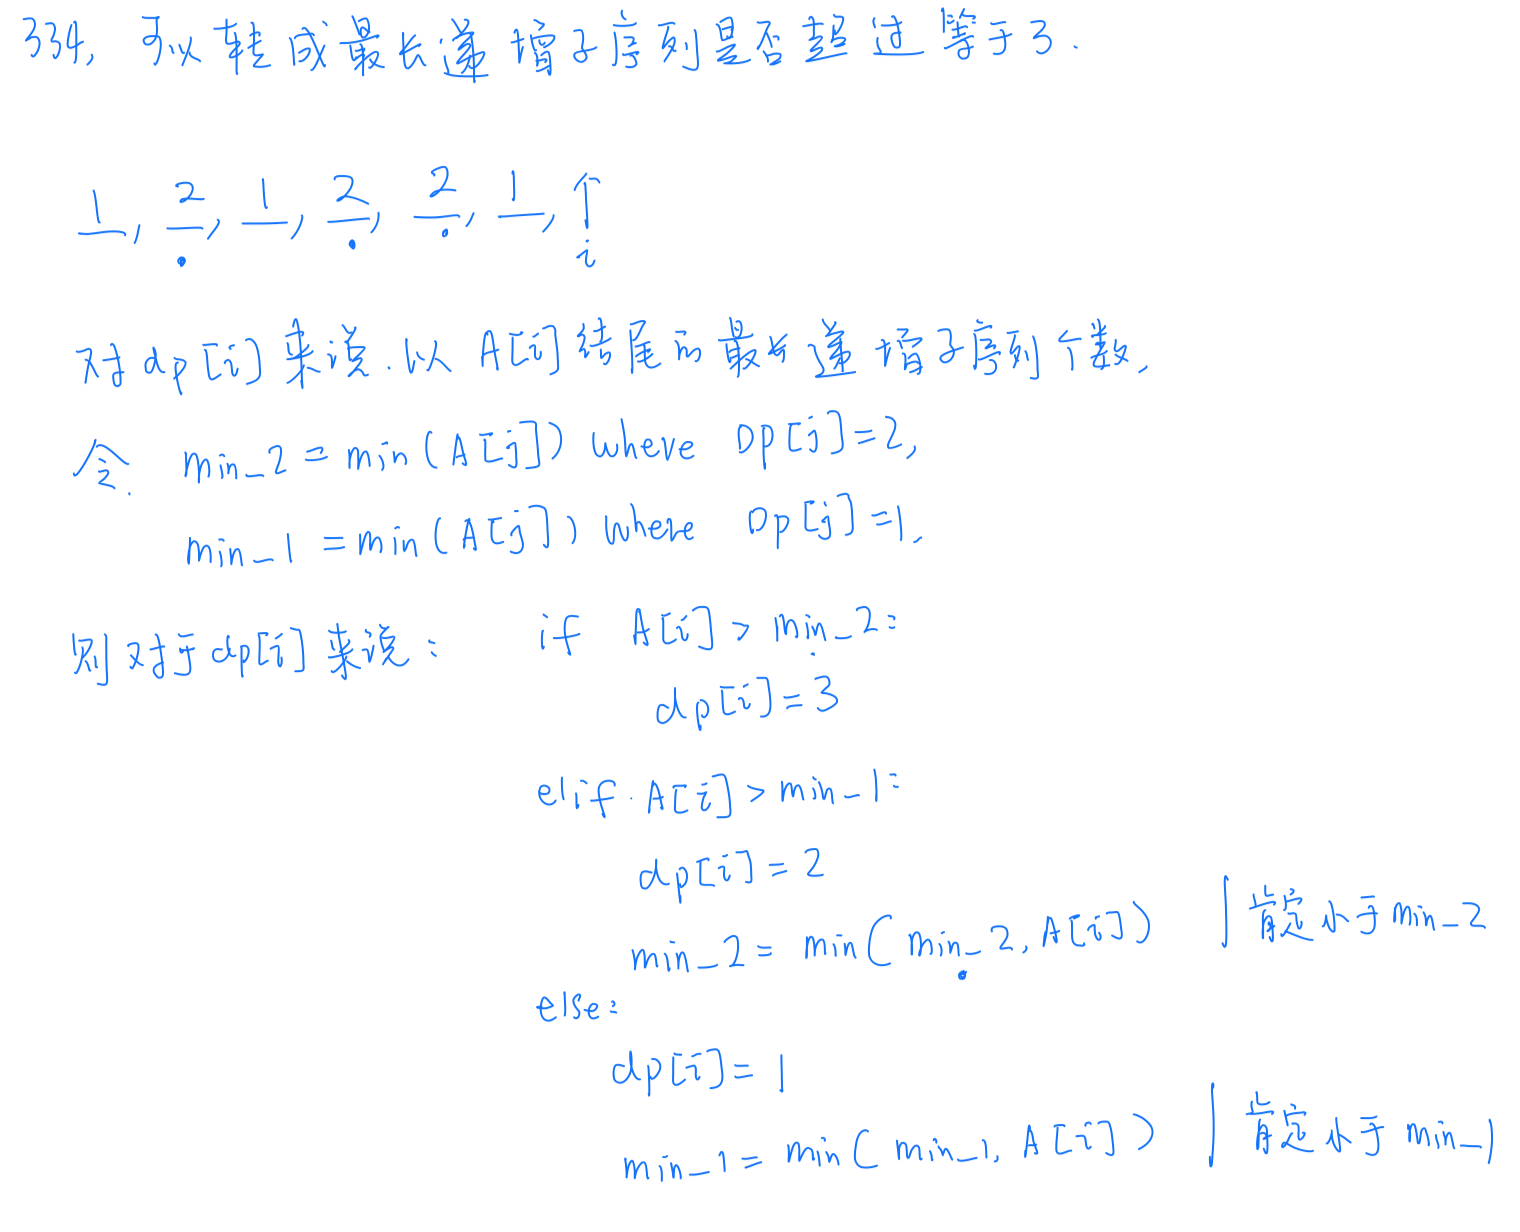 334, 可以转成最长递增子序列是否超过等于3.
1, 2, 1, 2, 2, 1, ↑
i
对dp[i]来说.以A[i]结尾的最长递增子序列个数,
令. min_2 = min(A[j]) where Dp[j]=2,
min_1 = min(A[j]) where Dp[j]=1,
则对于dp[i]来说: if A[i] > min_2:
dp[i]=3
elif A[i] > min_1:
dp[i]=2
min_2 = min(min_2, A[i]) 肯定小于min_2
else:
dp[i]=1
min_1 = min(min_1, A[i]) 肯定小于min_1